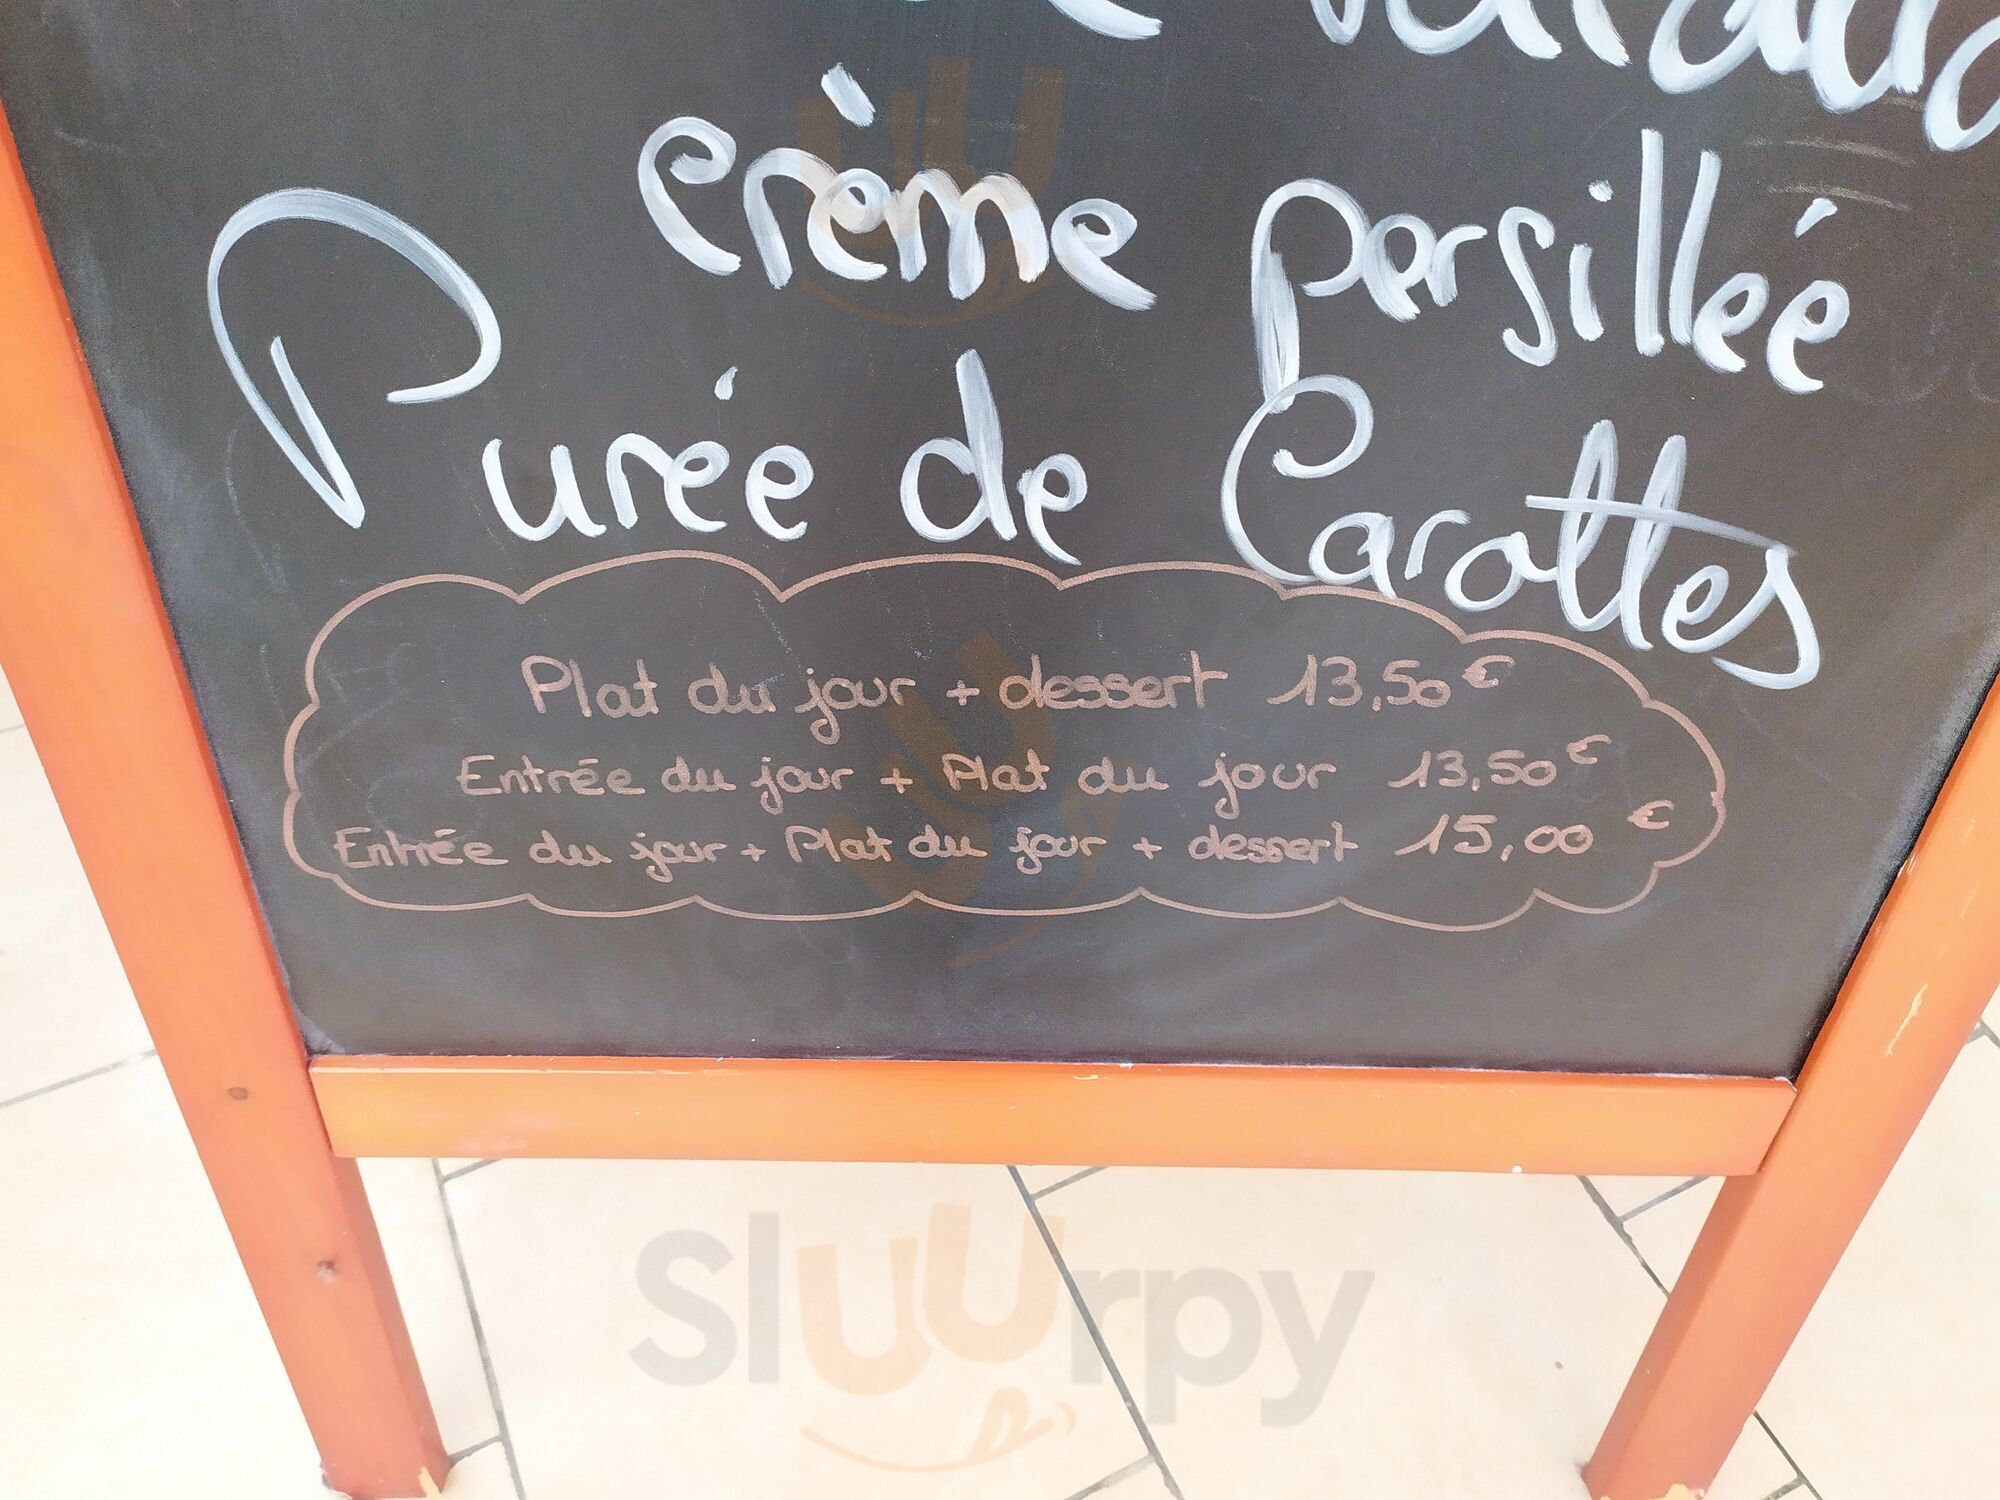 crème persillée
Purée de Carottes
Plat du jour + dessert 13,50 €
Entrée du jour + Plat du jour 13,50 €
Entrée du jour + Plat du jour + dessert 15,00 €
Sluurpy